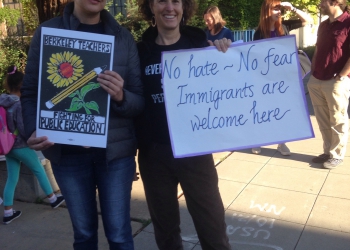 BERKELEY TEACHERS
FIGHTING FOR
PUBLIC EDUCATION
No hate ~ No fear
Immigrants are
welcome here
NEVER
USA
NM